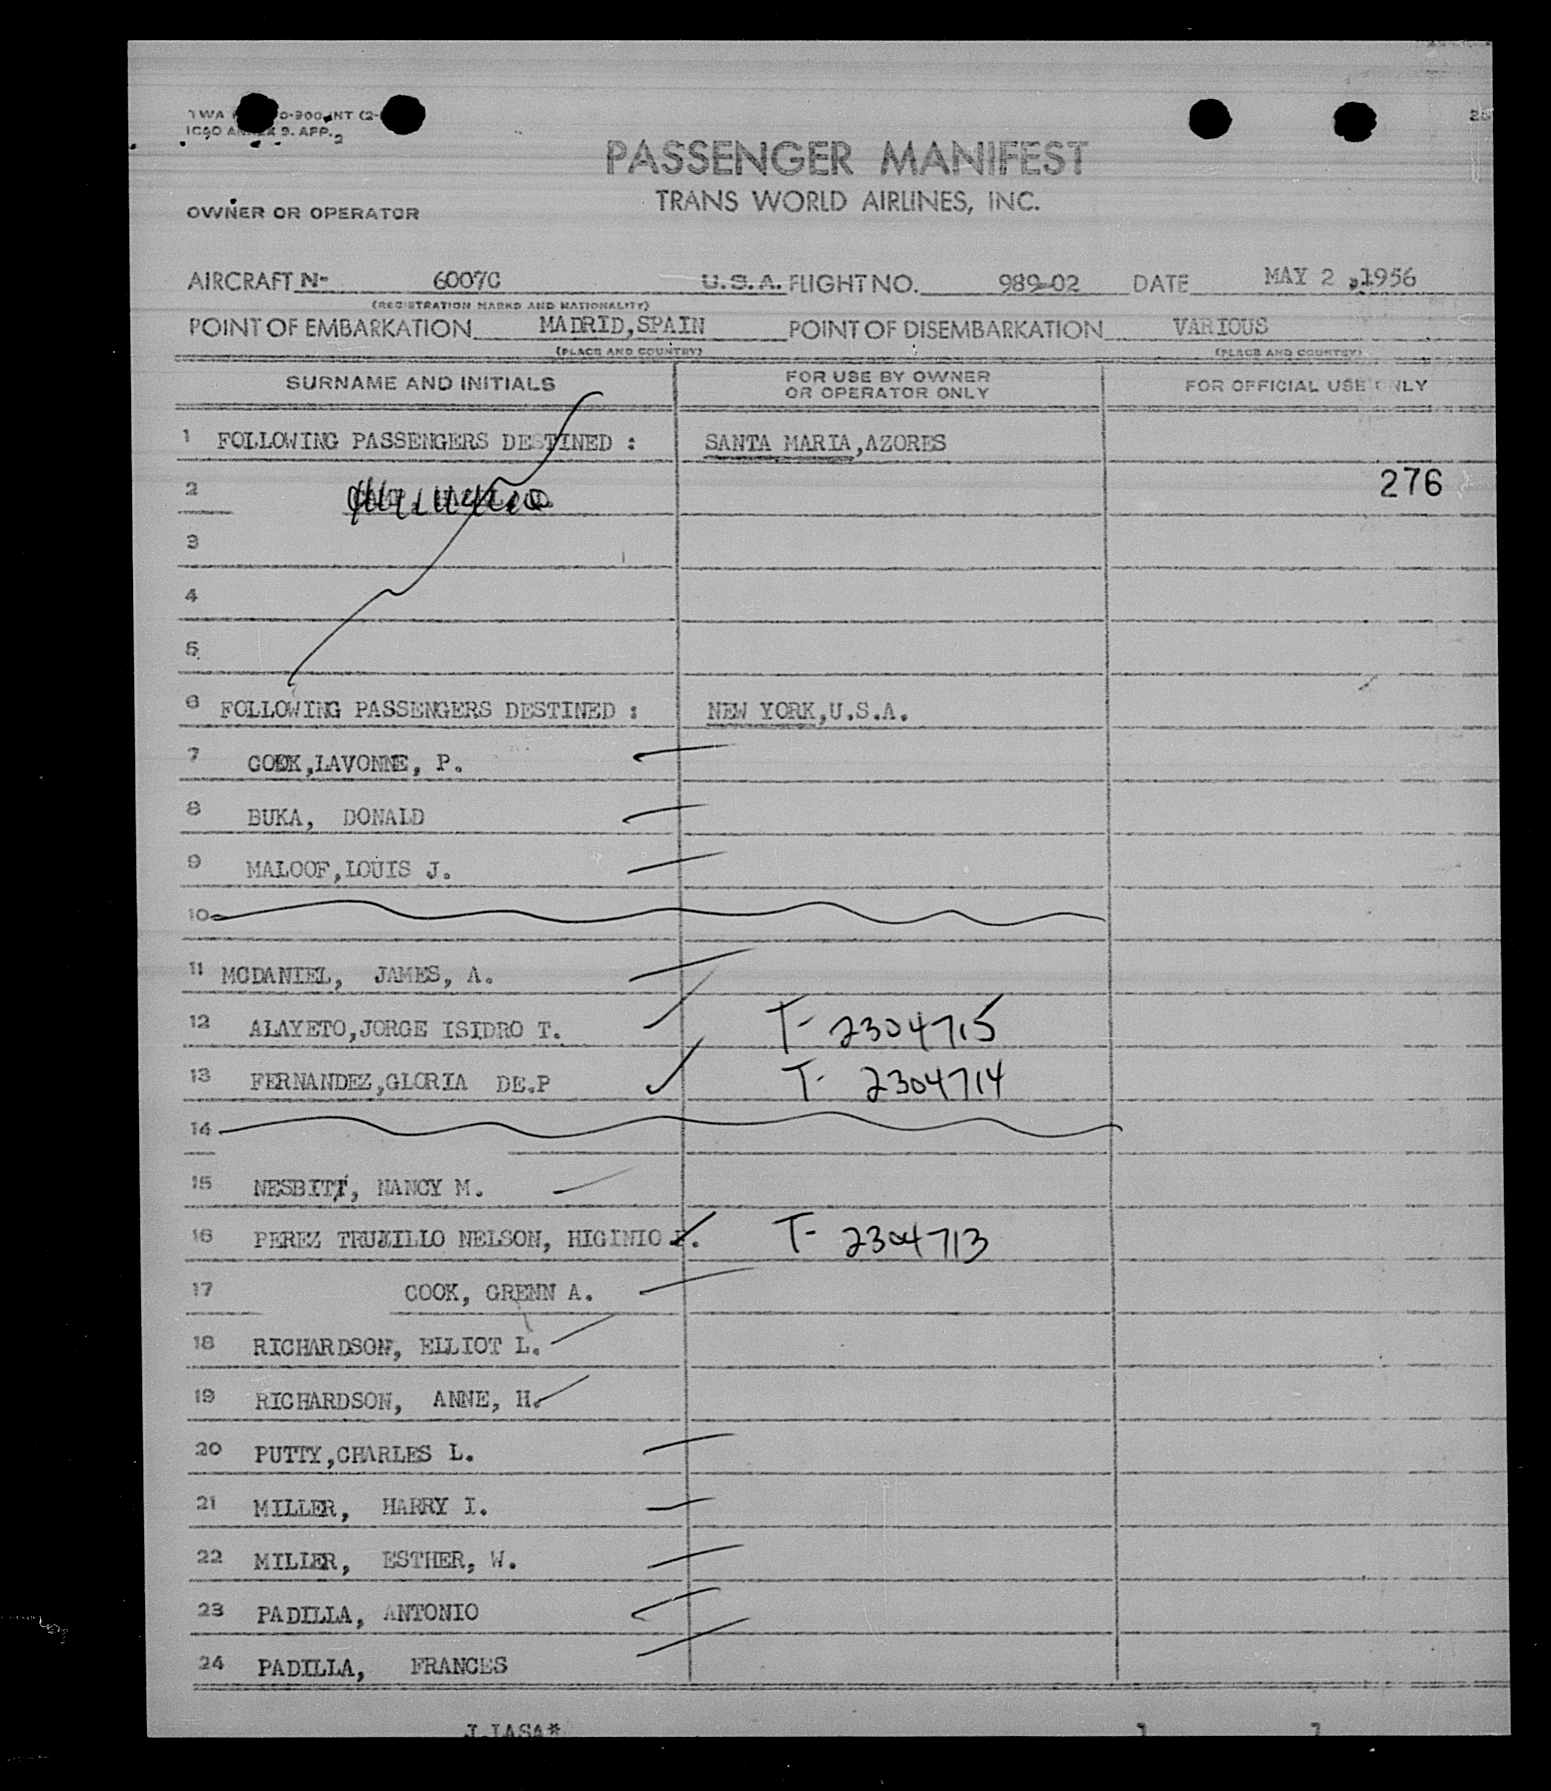 PASSENGER MANIFEST
TRANS WORLD AIRLINES, INC.
OWNER OR OPERATOR
AIRCRAFT N- 6007C U.S.A. FLIGHT NO. 989-02 DATE MAY 2, 1956
(REGISTRATION MARKS AND NATIONALITY)
POINT OF EMBARKATION MADRID,SPAIN POINT OF DISEMBARKATION VARIOUS
(PLACE AND COUNTRY) (PLACE AND COUNTRY)
SURNAME AND INITIALS FOR USE BY OWNER OR OPERATOR ONLY FOR OFFICIAL USE ONLY
1 FOLLOWING PASSENGERS DESTINED : SANTA MARIA,AZORES
2 276
3
4
5
6 FOLLOWING PASSENGERS DESTINED : NEW YORK,U.S.A.
7 COOK,LAVONNE, P.
8 BUKA, DONALD
9 MALOOF,LOUIS J.
10
11 MCDANIEL, JAMES, A.
12 ALAYETO,JORGE ISIDRO T. T- 2304715
13 FERNANDEZ,GLORIA DE.P T- 2304714
14
15 NESBITT, NANCY M.
16 PEREZ TRUJILLO NELSON, HIGINIO T- 2304713
17 COOK, GRENN A.
18 RICHARDSON, ELLIOT L.
19 RICHARDSON, ANNE, H.
20 PUTTY,CHARLES L.
21 MILLER, HARRY I.
22 MILLER, ESTHER, W.
23 PADILLA, ANTONIO
24 PADILLA, FRANCES